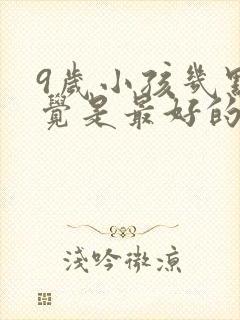 9歲小孩幾點
覺是最好的
淺吟微涼